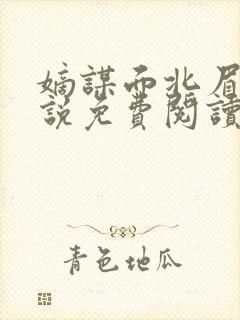 嫡謀而北眉
說免費閱讀
青色地瓜